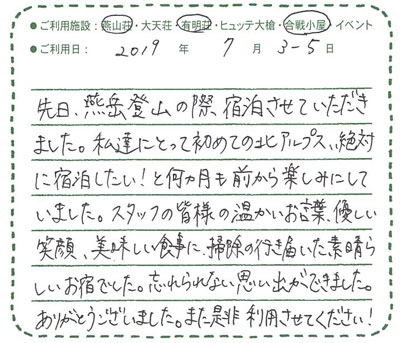 ●ご利用施設：燕山荘・大天荘・有明荘・ヒュッテ大槍・合戦小屋・イベント
●ご利用日： 2019 年 7 月 3-5 日
先日、燕岳登山の際、宿泊させていただき
ました。私達にとって初めての北アルプス、、絶対
に宿泊したい！と何カ月も前から楽しみにして
いました。スタッフの皆様の温かいお言葉、優しい
笑顔、美味しい食事に、掃除の行き届いた素晴ら
しいお宿でした。忘れられない思い出ができました。
ありがとうございました。また是非利用させてください！